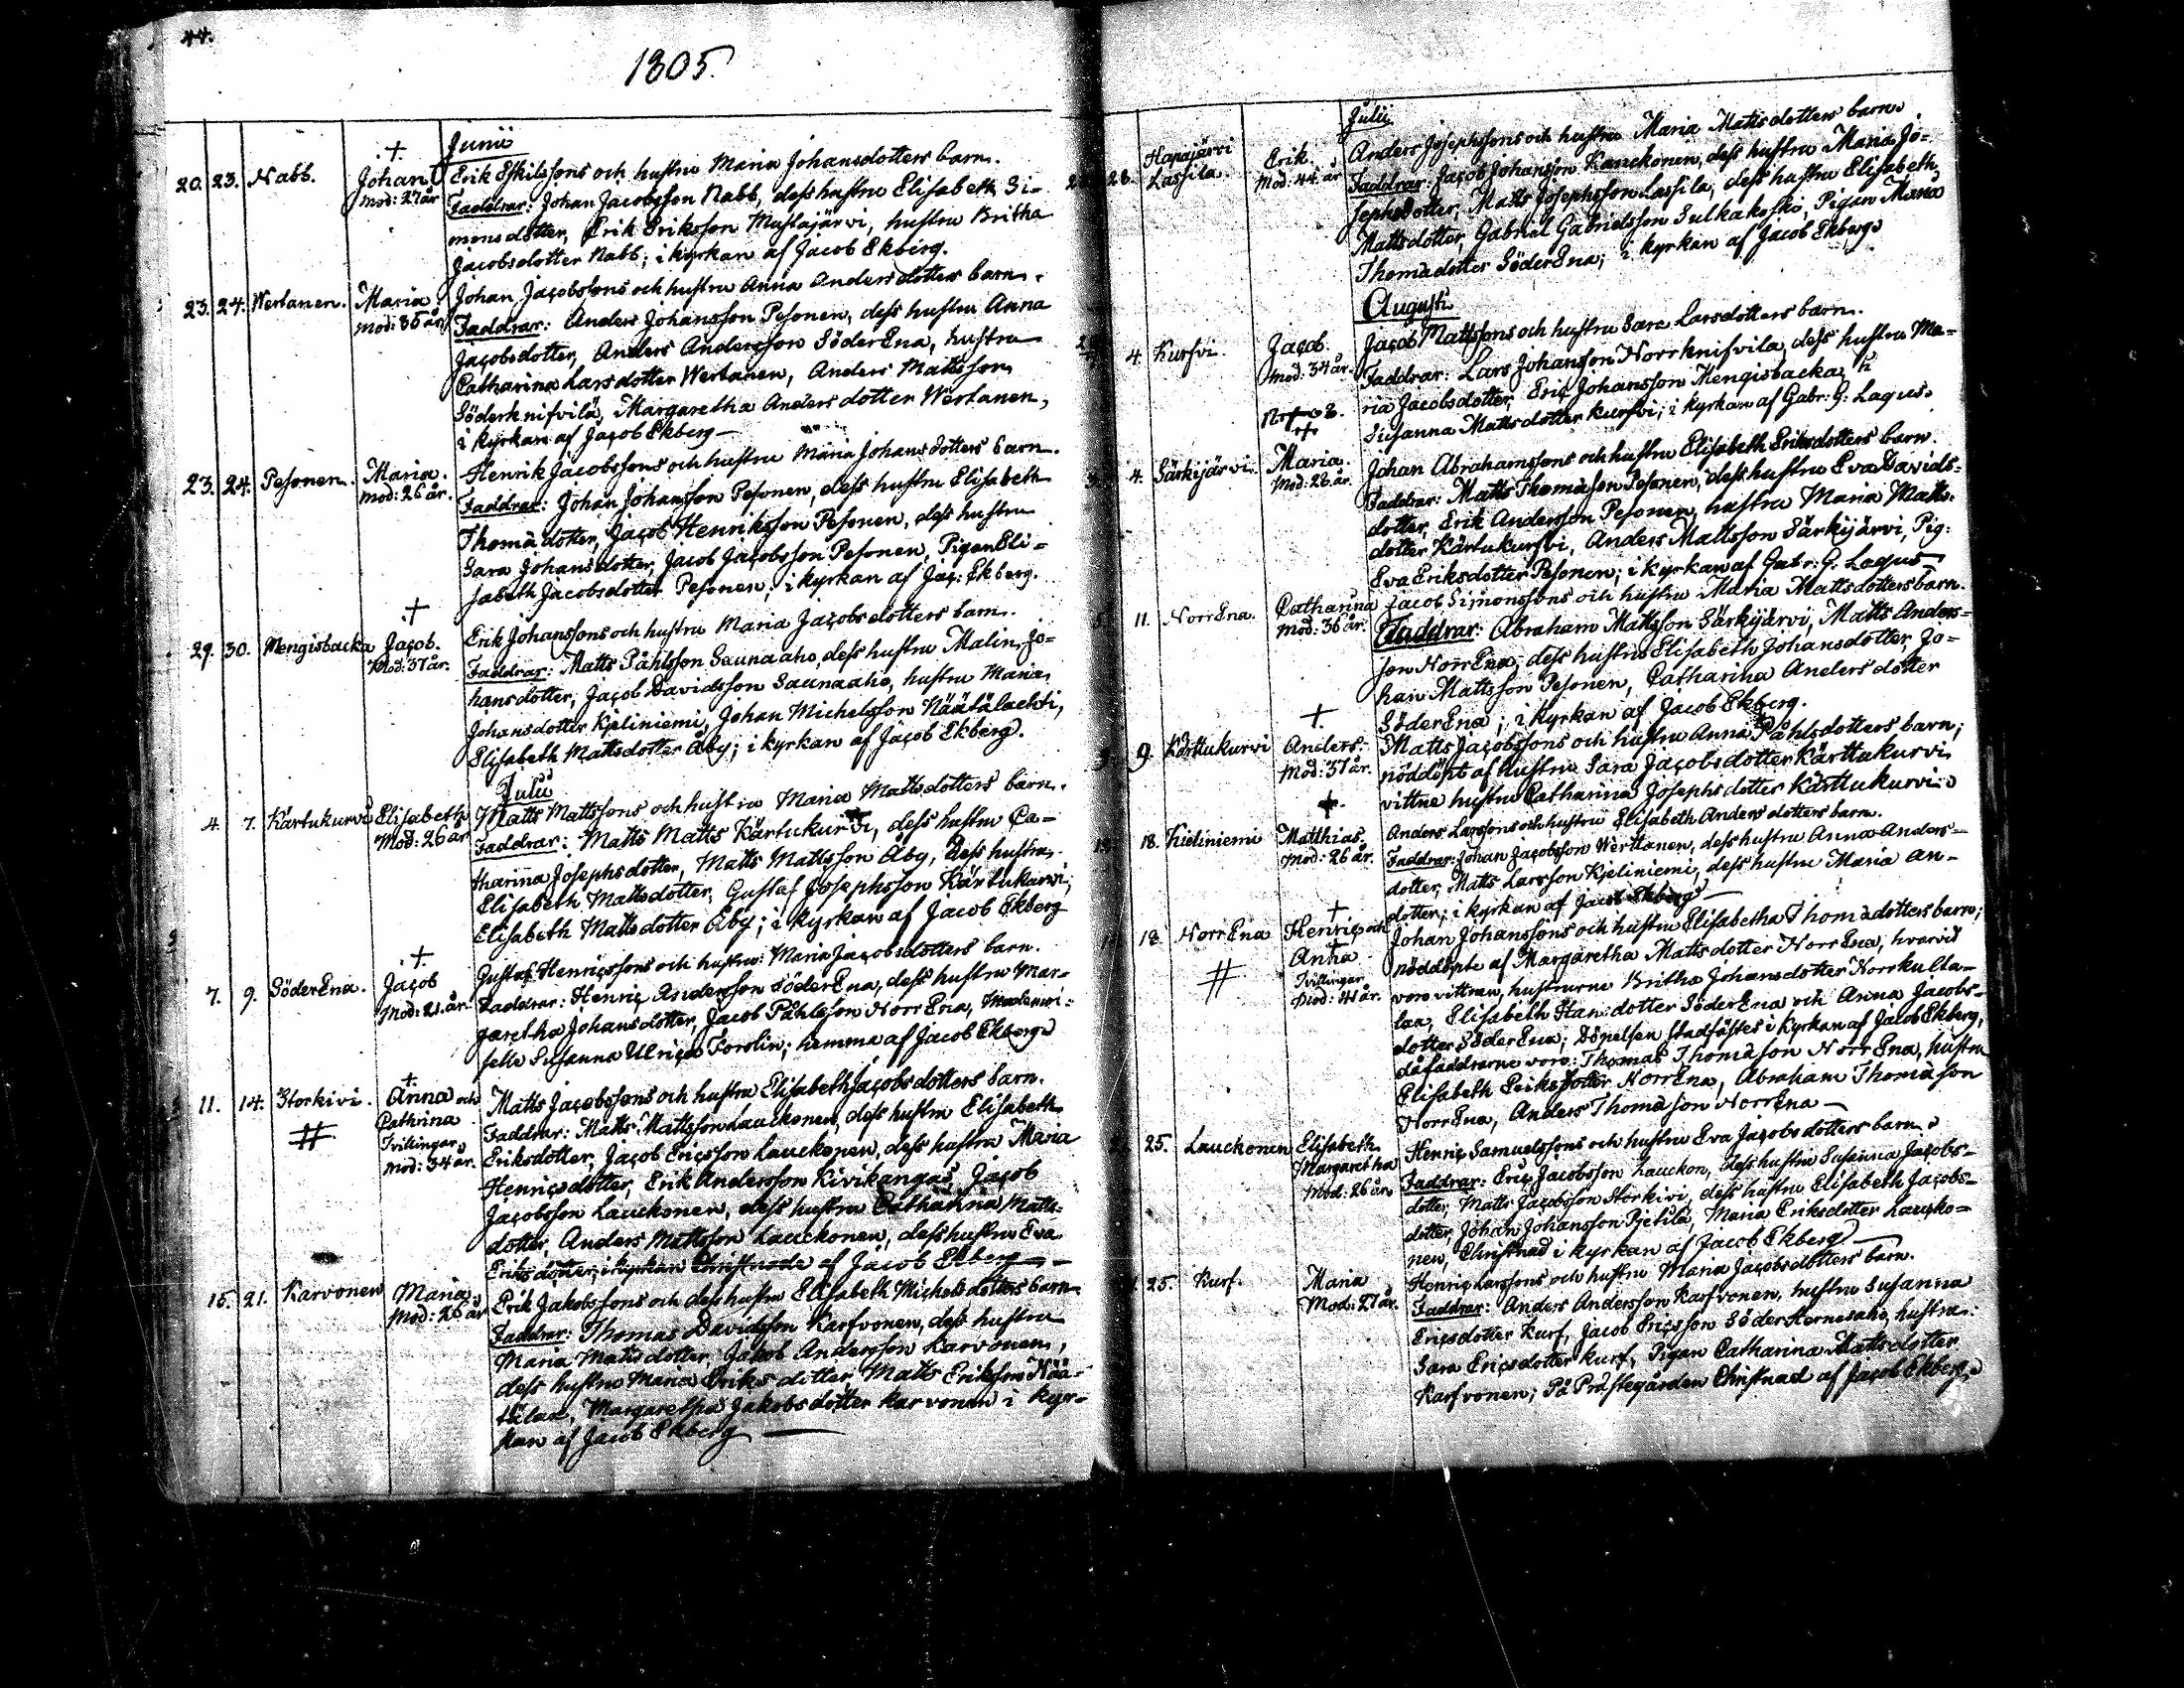 44.
1805.
Junii
20. 23. Nabb. Johan Mod: 27 år
Erik Eskilssons och hustru Maria Johansdotters barn.
Faddrar: Johan Jacobsson Nabb, dess hustru Elisabeth Si-
mons dotter, Erik Eriksson Mustajärvi, hustru Britha
Jacobsdotter Nabb; i kyrkan af Jacob Ekberg.
23. 24. Wertanen. Maria Mod: 35 år
Johan Jacobssons och hustru Anna Anders dotters barn.
Faddrar: Anders Johansson Pesonen, dess hustru Anna
Jacobsdotter, Anders Andersson SöderEna, hustru
Catharina Lars dotter Wertanen, Anders Mattsson
Söderknifvilä, Margaretha Anders dotter Wertanen,
i kyrkan af Jacob Ekberg
23. 24. Pesonen. Maria. Mod: 26 år.
Henrik Jacobssons och hustru Maria Johans dotters barn.
Faddrar: Johan Johansson Pesonen, dess hustru Elisabeth
Thomä dotter, Jacob Henriksson Pesonen, dess hustru
Sara Johans dotter, Jacob Jacobsson Pesonen, Pigan Eli-
sabeth Jacobsdotter Pesonen; i kyrkan af Jac: Ekberg.
29. 30. Mengisbacka Jacob. Mod: 37 år.
Erik Johanssons och hustru Maria Jacobs dotters barn.
Faddrar: Matts Påhlsson Saunaaho, dess hustru Malin Jo-
hansdotter, Jacob Davidsson Saunaaho, hustru Maria
Johansdotter Kjeliniemi, Johan Michelsson Näätälachti,
Elisabeth Mattsdotter Åby; i kyrkan af Jacob Ekberg.
Julii
4. 7. Kärtukurvi Elisabeth Mod: 26 år
Matts Mattssons och hustru Maria Matts dotters barn.
Faddrar: Matts Matts Kärtukurvi, dess hustru Ca-
tharina Josephs dotter, Matts Mattsson Åby, dess hustru
Elisabeth Mattsdotter, Gustaf Josephsson Kärtukurvi,
Elisabeth Matts dotter Åby; i kyrkan af Jacob Ekberg
7. 9. SöderEna. Jacob Mod: 21. år.
Gustaf Henricssons och hustru: Maria Jacobsdotters barn.
Faddrar: Henric Andersson SöderEna, dess hustru Mar-
garetha Johans dotter, Jacob Påhlsson NorrEna, Mademoi-
selle Susanna Ulrica Forslin; hemma af Jacob Ekberg
11. 14. Storkivi. Anna och Cathrina Tvillingar, Mod: 34 år.
Matts Jacobssons och hustru Elisabeth Jacobs dotters barn.
Faddrar: Matts Mattsson Lauckonen, dess hustru Elisabeth
Eriksdotter, Jacob Ericsson Lauckonen, dess hustru Maria
Henricsdotter, Erik Andersson Kivikangas, Jacob
Jacobsson Lauckonen, dess hustru Catharina Matts-
dotter, Anders Mattsson Lauckonen, dess hustru Eva
Eriks dotter; i kyrkan Christnade af Jacob Ekberg
15. 21. Karvonen Maria, Mod: 26 år
Erik Jakobssons och dess hustru Elisabeth Michels dotters barn
Faddrar: Thomas Davidsson Karfvonen, dess hustru
Maria Matts dotter, Jakob Andersson Karvonen,
dess hustru Maria Eriks dotter, Matts Eriksson Nää-
tälax, Margaretha Jakobs dotter Karvonen i kyr-
kan af Jacob Ekberg
Julii
28. Hapajärvi Lassila. Erik. Mod: 44 år
Anders Josephssons och hustru Maria Matts dotters barn
Faddrar: Jacob Johansson Kauckonen, dess hustru Maria Jo-
sephsdotter, Matts Josephsson Lassila, dess hustru Elisabeth
Mattsdotter, Gabriel Gabrielsson Sulkakoski, Pigan Maria
Thomädotter SöderEna; i kyrkan af Jacob Ekberg
Augusti
4. Kurfvi. Jacob. Mod: 34 år.
Jacob Mattssons och hustru Sara Larsdotters barn.
Faddrar: Lars Johansson Norrknifvila, dess hustru Ma-
ria Jacobsdotter, Eric Johansson Mengisbacka, h
Susanna Matts dotter Kurfvi; i kyrkan af Gabr: G: Lagus.
4. Särkijärvi. Maria. Mod: 26 år.
Johan Abrahamssons och hustru Elisabeth Eriksdotters barn.
Faddrar: Matts Thomäson Pesonen, dess hustru Eva Davids-
dotter, Erik Andersson Pesonen, hustru Maria Matts-
dotter Kärtukurfvi, Anders Mattsson Särkijärvi, Pig:
Eva Eriksdotter Pesonen; i kyrkan af Gabr: G. Lagus
11. NorrEna. Catharina Mod: 36 år.
Jacob Simonssons och hustru Maria Mattsdotters barn.
Faddrar: Abraham Mattsson Särkijärvi, Matts Anders-
son NorrEna, dess hustru Elisabeth Johansdotter, Jo-
han Mattsson Pesonen, Catharina Anders dotter
SöderEna; i kyrkan af Jacob Ekberg.
9. Kärttukurvi Anders. Mod: 37 år.
Matts Jacobssons och hustru Anna Påhlsdotters barn;
nöddöpt af hustru Sara Jacobs dotter Kärttukurvi
vittne hustru Catharina Josephs dotter Kärttukurvi
18. Kieliniemi Matthias. Mod: 26 år.
Anders Larssons och hustru Elisabeth Anders dotters barn.
Faddrar: Johan Jacobsson Werttanen, dess hustru Anna Anders-
dotter, Matts Larsson Kjeliniemi, dess hustru Maria An-
dotter; i kyrkan af Jacob Ekberg
18. NorrEna Henric och Anna Tvillingar Mod: 41 år.
Johan Johanssons och hustru Elisabetha Thomä dotters barn;
nöddöpte af Margaretha Matts dotter NorrEna, hvarvid
voro vittnen, hustrurne Britha Johans dotter Norrkulta-
lax, Elisabeth Hans dotter SöderEna och Anna Jacobs-
dotter SöderEna; Döpelsen stadfästes i kyrkan af Jacob Ekberg,
då faddrarne voro: Thomas Thomäson NorrEna, hustru
Elisabeth Eriks dotter NorrEna, Abraham Thomäson
NorrEna, Anders Thomäson NorrEna
25. Lauckonen Elisabeth Margaretha Mod: 26 år
Henric Samuelssons och hustru Eva Jacobs dotters barn
Faddrar: Eric Jacobsson Lauckon, dess hustru Susanna Jacobs-
dotter, Matts Jacobsson Storkivi, dess hustru Elisabeth Jacobs-
dotter, Johan Johansson Pjetilä, Maria Eriksdotter Laucko-
nen, Christnad i kyrkan af Jacob Ekberg
25. Kurf. Maria Mod: 27 år.
Henric Larssons och hustru Maria Jacobsdotters barn.
Faddrar: Anders Andersson Karfvonen, hustru Susanna
Ericsdotter Kurf, Jacob Ericsson Söder Hernesaho, hustru
Sara Ericsdotter Kurf, Pigan Catharina Mattsdotter
Karfvonen; På Prästegården Christnad af Jacob Ekberg